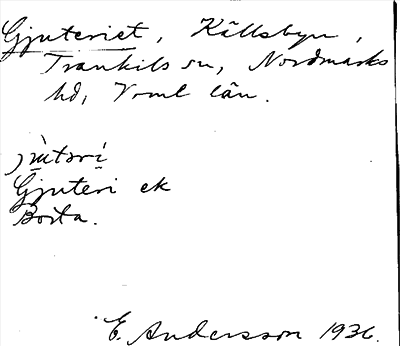 Gjuteriet, Källsbyn,
Trankils sn, Nordmarks
hd, Vrml län.
Gjuteri ek
Borta.
E. Andersson 1936.